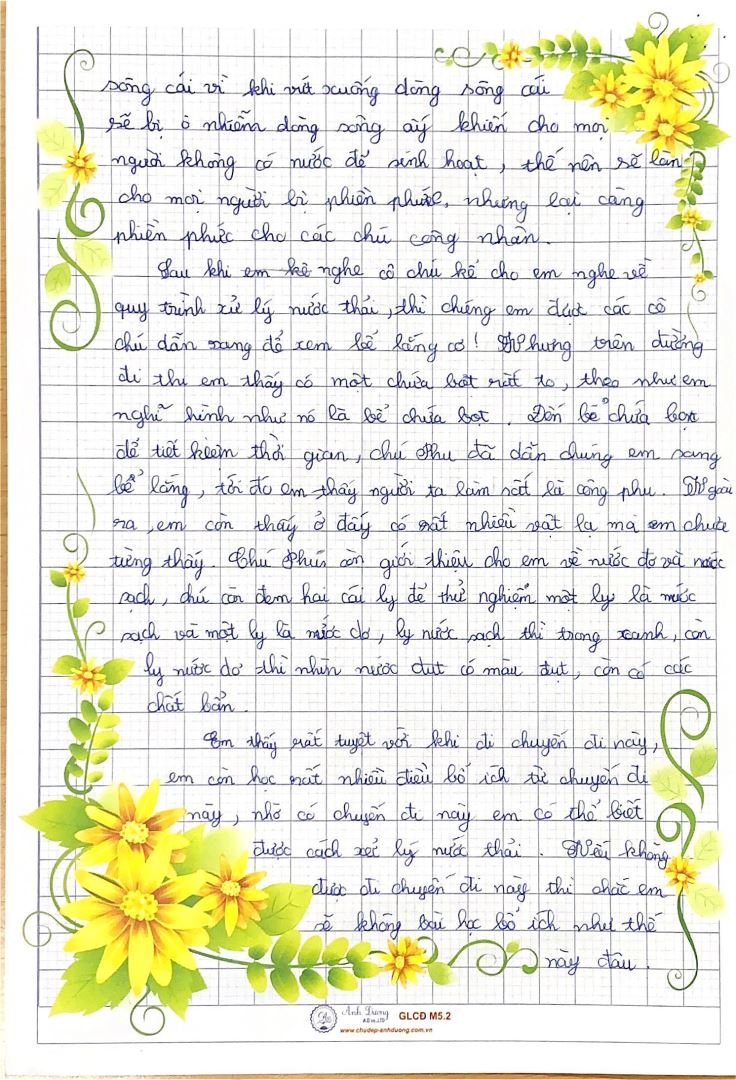 sông cái vì khi vứt xuống dòng sông cái
sẽ bị ô nhiễm dòng sông aý khiến cho mọi
người không có nước để sinh hoạt, thế nên sẽ làn
cho mọi người bị phiền phức, nhưng lại càng
phiền phức cho các chú công nhân.
Sau khi em kê nghe cô chú kể cho em nghe về
quy trình xử lý nước thải, thì chúng em được các cô
chú dẫn sang để xem bể lắng cơ! Nhưng trên đường
đi thi em thấy có một chứa bọt rất to, theo như em
nghĩ hình như nó là bể chứa bọt. Đến bể chứa bọt
để tiết kiệm thời gian, chú Phu đã dẫn chúng em sang
bể lắng, tới đo em thấy người ta làm rất là công phu. Ngoài
ra, em còn thấy ở đấy có rất nhiều vật lạ mà em chưa
từng thấy. Chú Phú còn giới thiệu cho em về nước dơ và nước
sạch, chú còn đem hai cái ly để thử nghiểm một ly là nước
sạch và một ly là nước dơ, ly nước sạch thì trong xoanh, còn
ly nước dơ thì nhìn nước đụt có màu đụt, còn có các
chất bẩn.
Em thấy rất tuyệt vời khi đi chuyến đi này,
em còn học rất nhiều điều bổ ích từ chuyến đi
này, nhờ có chuyến đi này em có thể biết
được cách xử lý nước thải. Nếu không
được đi chuyến đi này thì chắc em
sẽ không bài học bổ ích như thế
này đâu.
Ánh Dương
AD co.,LTD
GLCĐ M5.2
www.chudep-anhduong.com.vn